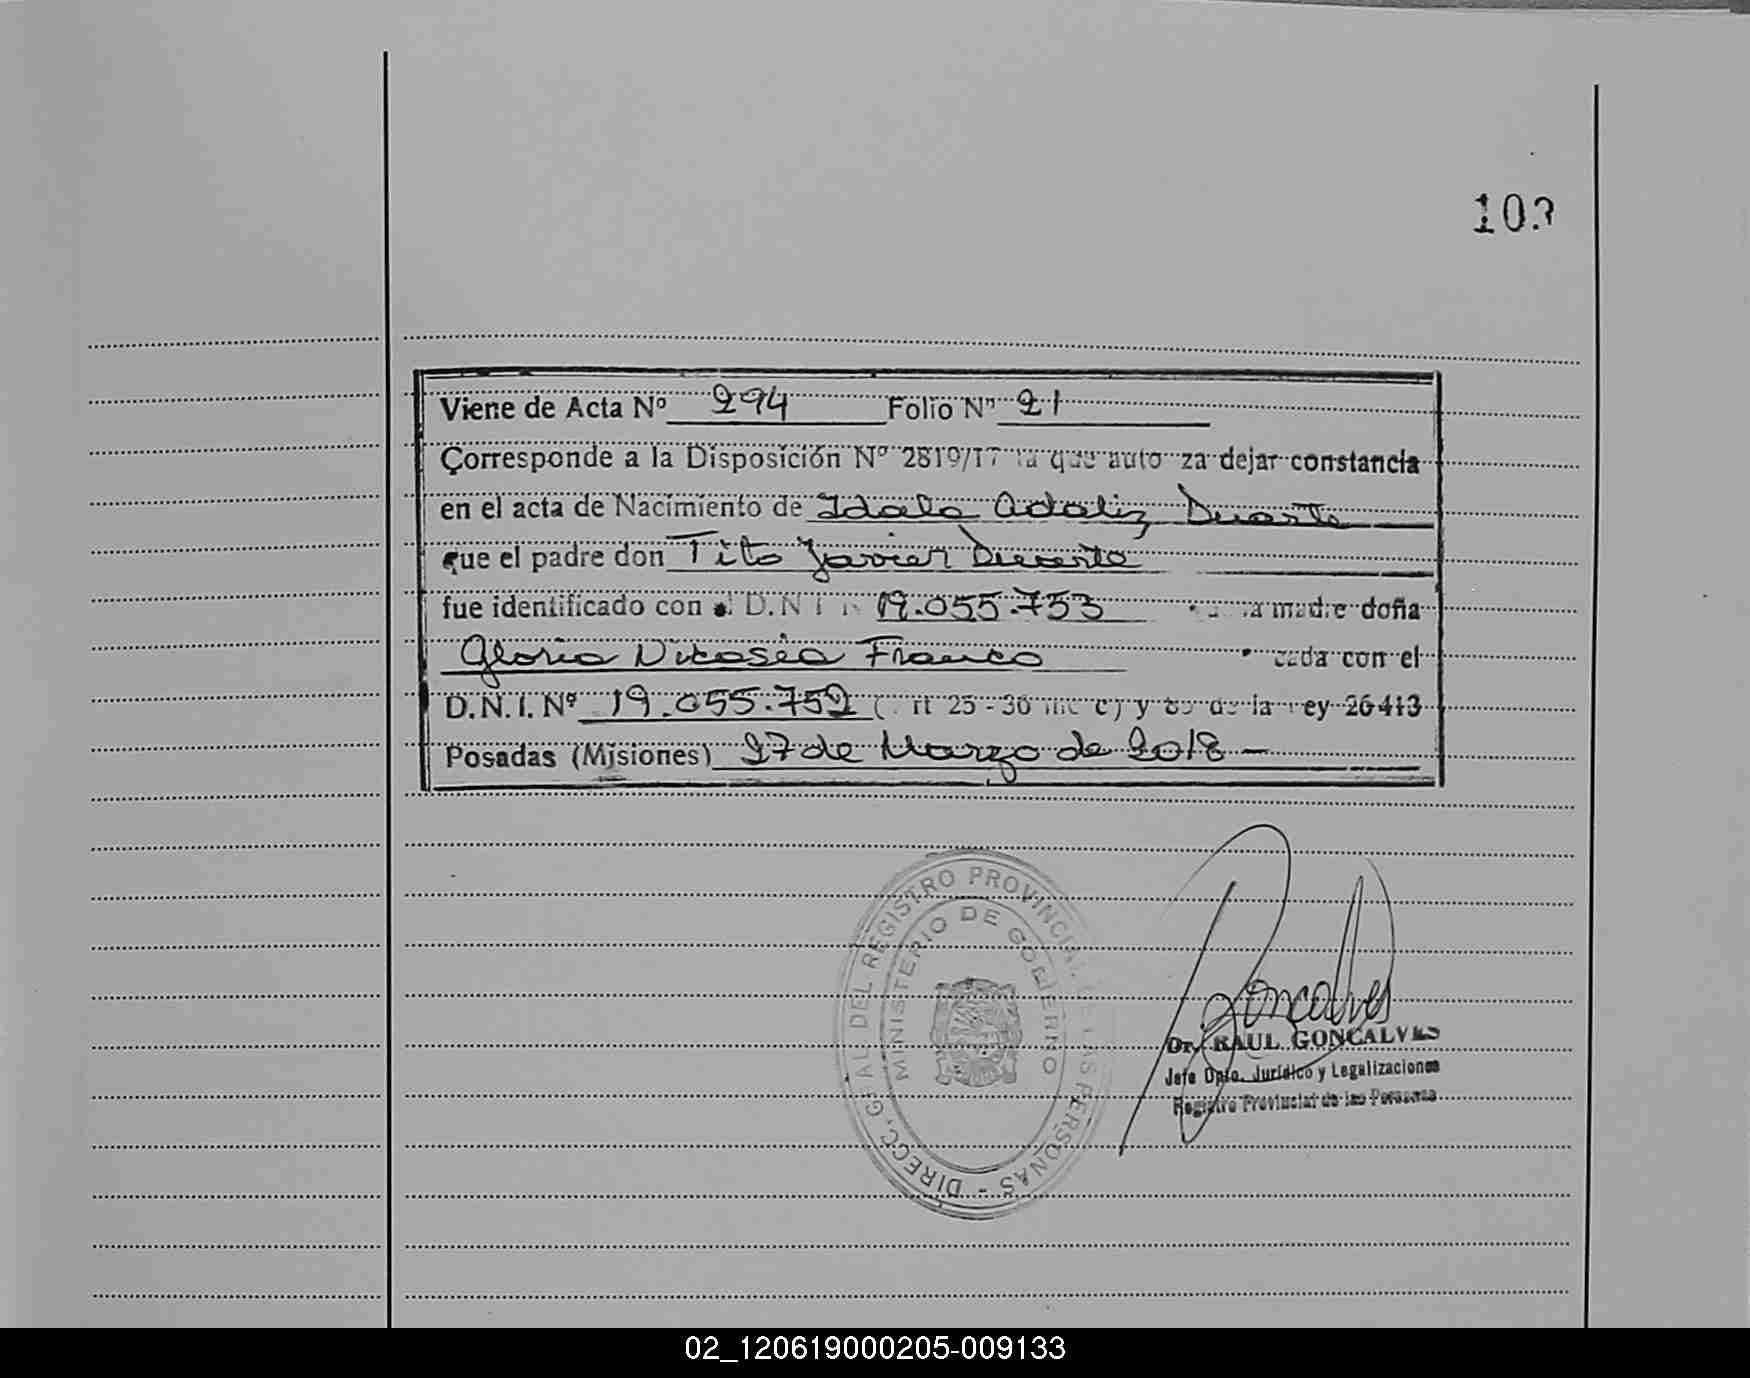 103
Viene de Acta Nº 294 Folio Nº 21
Corresponde a la Disposición Nº 2819/17 la que autoriza dejar constancia
en el acta de Nacimiento de Idalo Adaliz Duarte
que el padre don Tito Javier Duarte
fue identificado con el D.N.I. 19.055.753 la madre doña
Gloria Nicasia Franco cada con el
D.N.I. Nº 19.055.752 ( rt 25 - 36 inc c) y 85 de la ley 26413
Posadas (Misiones) 27 de Marzo de 2018 -
DIRECC. GRAL DEL REGISTRO PROVINCIAL DE LAS PERSONAS -
MINISTERIO DE GOBIERNO
Goncalves
Dr. RAUL GONCALVES
Jefe Dpto. Jurídico y Legalizaciones
Registro Provincial de las Personas
02_120619000205-009133